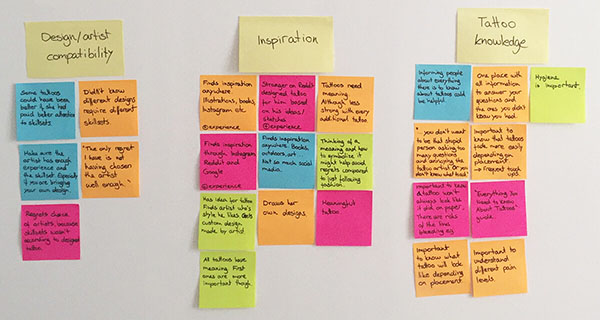 Design/artist
compatibility
Some tattoos
could have been
better, if she had
paid better attention
to skillsets.
Didn't know
different designs
require different
skillsets.
Make sure the
artist has enough
experience and
the skillset. Especially
if you are bringing
your own design.
"The only regret
I have is not
having chosen
the artist
well enough"
Regrets choice
of artists, because
skillsets wasn't
according to designed
tattoo.
Inspiration
Finds inspiration
anywhere.
Illustrations, books,
Instagram etc.
@experience
Stranger on Reddit
designed tattoo
for him based
on his ideas/
sketches
@experience
Tattoos need
meaning.
Although less
strong with every
additional tattoo.
Finds inspiration
through Instagram,
Reddit and
Google
@experience
Finds inspiration
anywhere. Books,
outdoors, art..
Not so much social
media.
Thinking of a
meaning and how
to symbolize it
might help avoid
regrets compared
to just following
fashion.
Has idea for tattoo
Finds artist who's
style he likes. Gets
custom design
made by artist
Draws her
own designs.
Meaningful
tattoo
All tattoos have
meaning. First
ones are more
important though.
Tattoo
knowledge
Informing people
about everything
there is to know
about tattoos could
be helpful.
One place with
all information
to answer your
questions and
the ones you didn't
know you had.
Hygiene
is important.
"..you don't want
to be that stupid
person asking too
many questions
and annoying the
tattoo artist. Or you
don't know what to ask."
Important to
know that tattoos
fade more easily
depending on
placement.
→ Frequent touch
ups!
Important to know
a tattoo won't
always look like
it did on paper.
There are risks
of the lines
bleeding eg.
"Everything You
Need to Know
About Tattoos"
guide.
Important
to know what
tattoo will look
like depending on
placement
Important to
understand
different pain
levels.